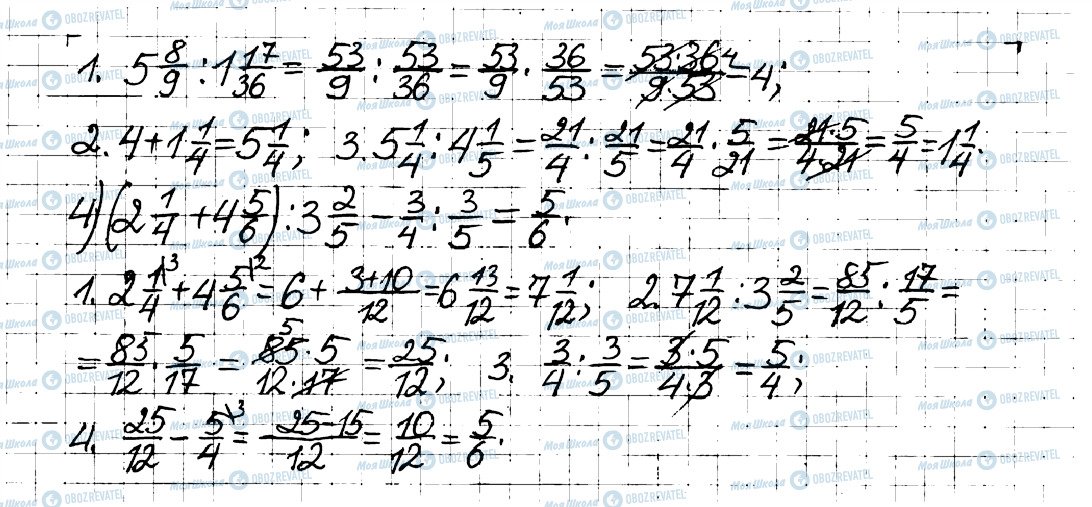 1. 5 8/9 : 1 17/36 = 53/9 : 53/36 = 53/9 · 36/53 = 53·36 4/9·53 = 4;
2. 4 + 1 1/4 = 5 1/4; 3. 5 1/4 : 4 1/5 = 21/4 : 21/5 = 21/4 · 5/21 = 21·5/4·21 = 5/4 = 1 1/4.
4) (2 1/4 + 4 5/6) : 3 2/5 - 3/4 : 3/5 = 5/6.
1. 2 1/4 \3 + 4 5/6 \2 = 6 + 3+10/12 = 6 13/12 = 7 1/12; 2. 7 1/12 : 3 2/5 = 85/12 : 17/5 =
= 85/12 · 5/17 = 85 5 · 5/12·17 = 25/12; 3. 3/4 : 3/5 = 3·5/4·3 = 5/4;
4. 25/12 - 5/4 \3 = 25-15/12 = 10/12 = 5/6.
Моя Школа OBOZREVATEL